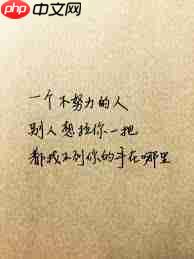 php 中文网
一个不努力的人
别人想拉你一把
都找不到你的手在哪里